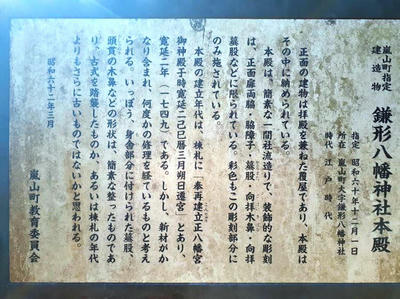 嵐山町指定
建造物
鎌形八幡神社本殿
指定 昭和六十年十二月一日
所在 嵐山町大字鎌形八幡神社
時代 江戸時代
正面の建物は拝殿を兼ねた覆屋であり、本殿は
その中に納められている。
本殿は、簡素な一間社流造りで、装飾的な彫刻
は、正面扉両脇・脇障子・蟇股・向拝木鼻・向拝
蟇股などに限られている。彩色もこの彫刻部分に
のみ施されている。
本殿の建立年代は、棟札に「奉再建立正八幡宮
御神殿子時寛延二己巳暦三月朔日遷宮」とあり、
寛延二年(一七四九)である。しかし、新材がか
なり含まれ、何度かの修理を経ているものと考え
られる。いっぽう、身舎部分に付けられた蟇股、
頭貫の木鼻などの形状は、簡素な整ったものであ
り、古式を踏襲したものか、あるいは棟札の年代
よりもさらに古いものではないかと思われる。
昭和六十二年三月
嵐山町教育委員会